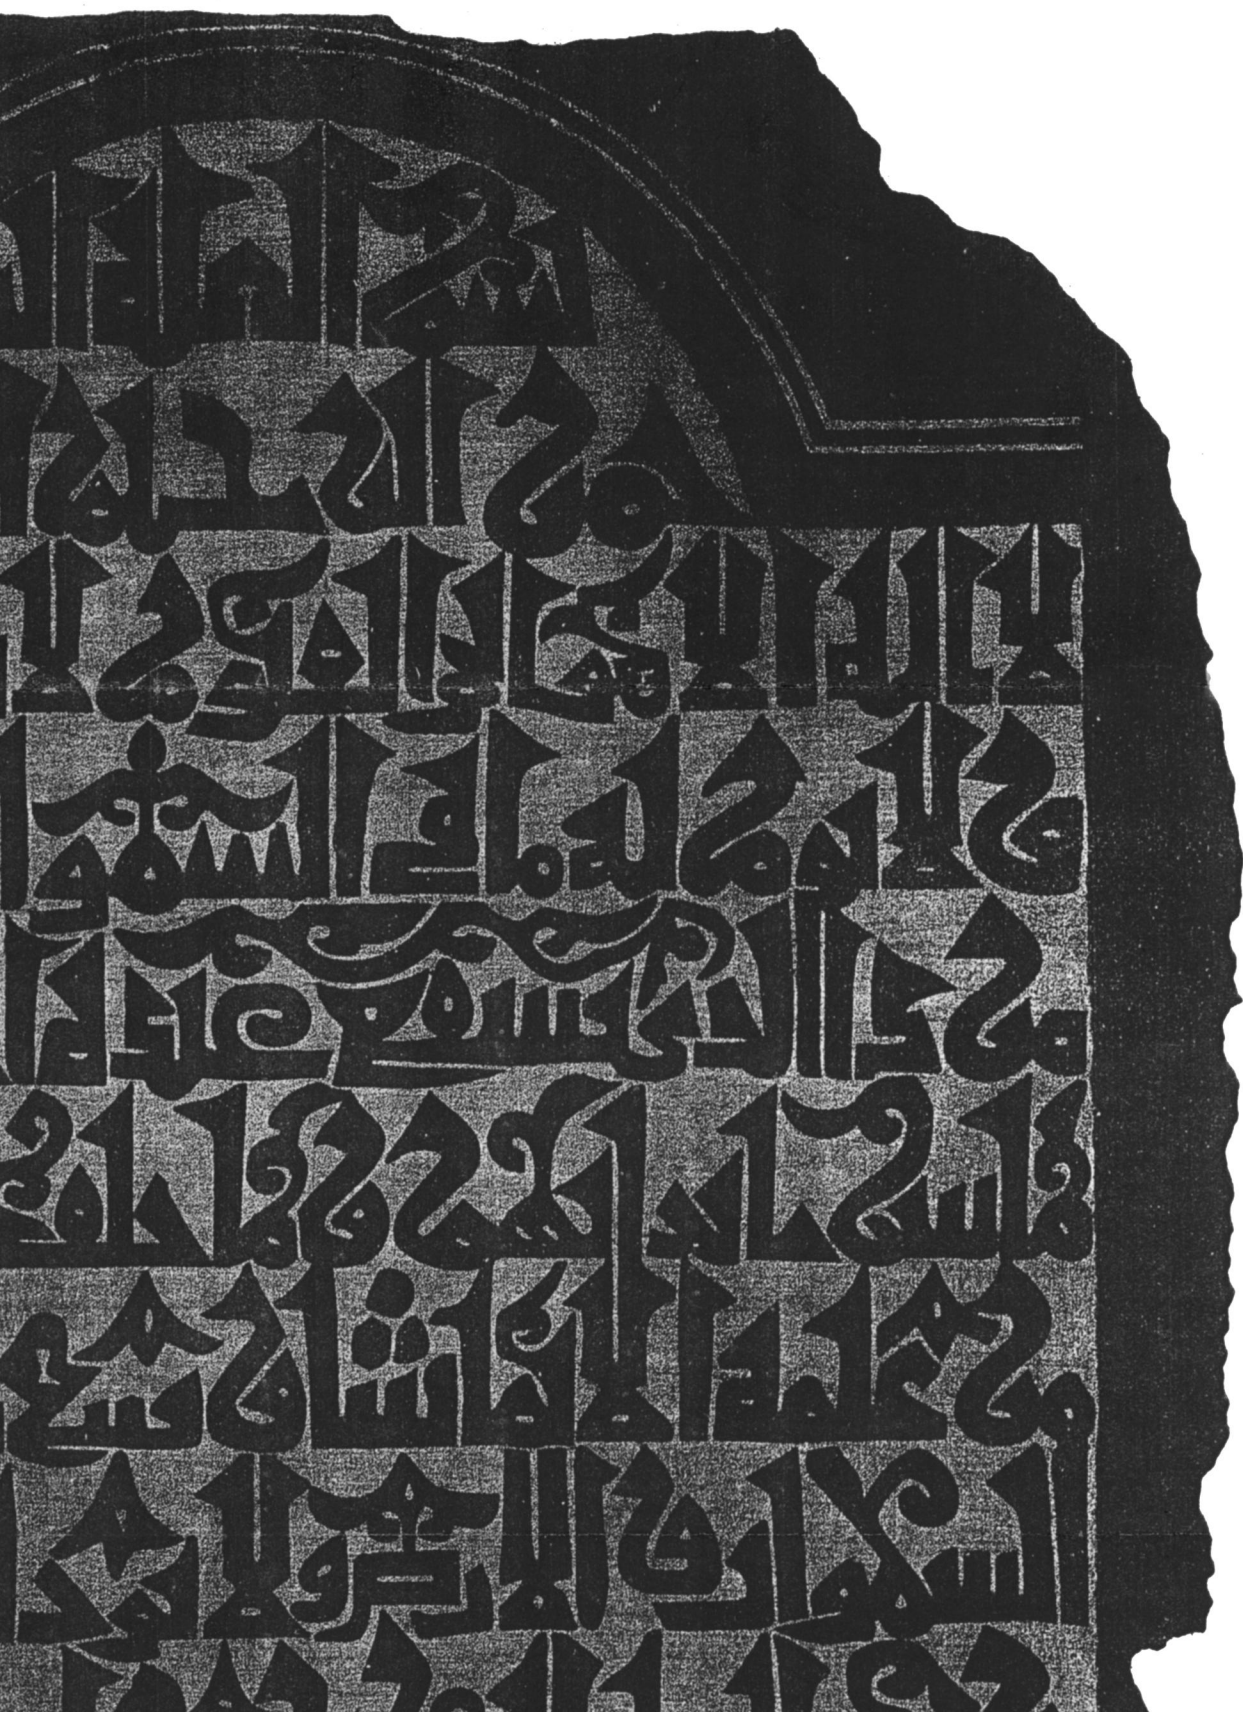 بسم الله الر
من الرحيم ا
لا اله الا هو الحى القيوم لا
ولا نوم له ما فى السمو ا
من ذا الذى يشفع عنده ا
ما بين ايديهم وما خلفهم
من علمه الا بما شا وسع
السموات والارض ولا يود